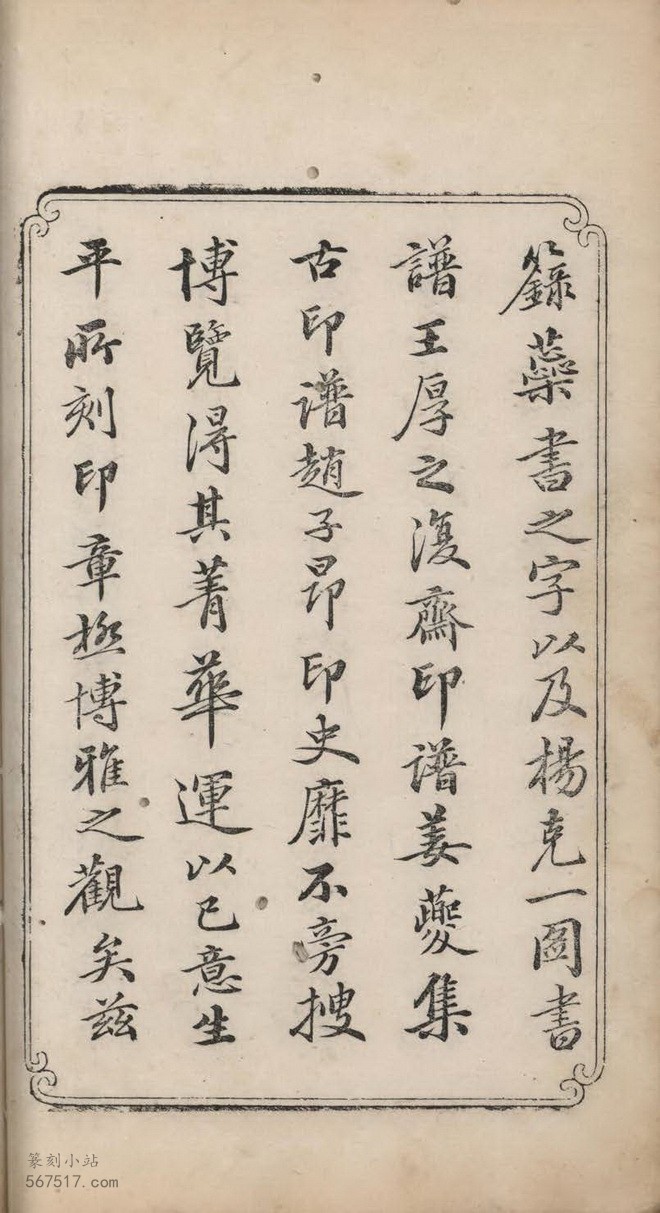 籙蘂書之字以及楊克一圖書
譜王厚之復齋印譜姜夔集
古印譜趙子昂印史靡不旁搜
博覽得其菁華運以已意生
平所刻印章極博雅之觀矣茲
篆刻小站
567517.com